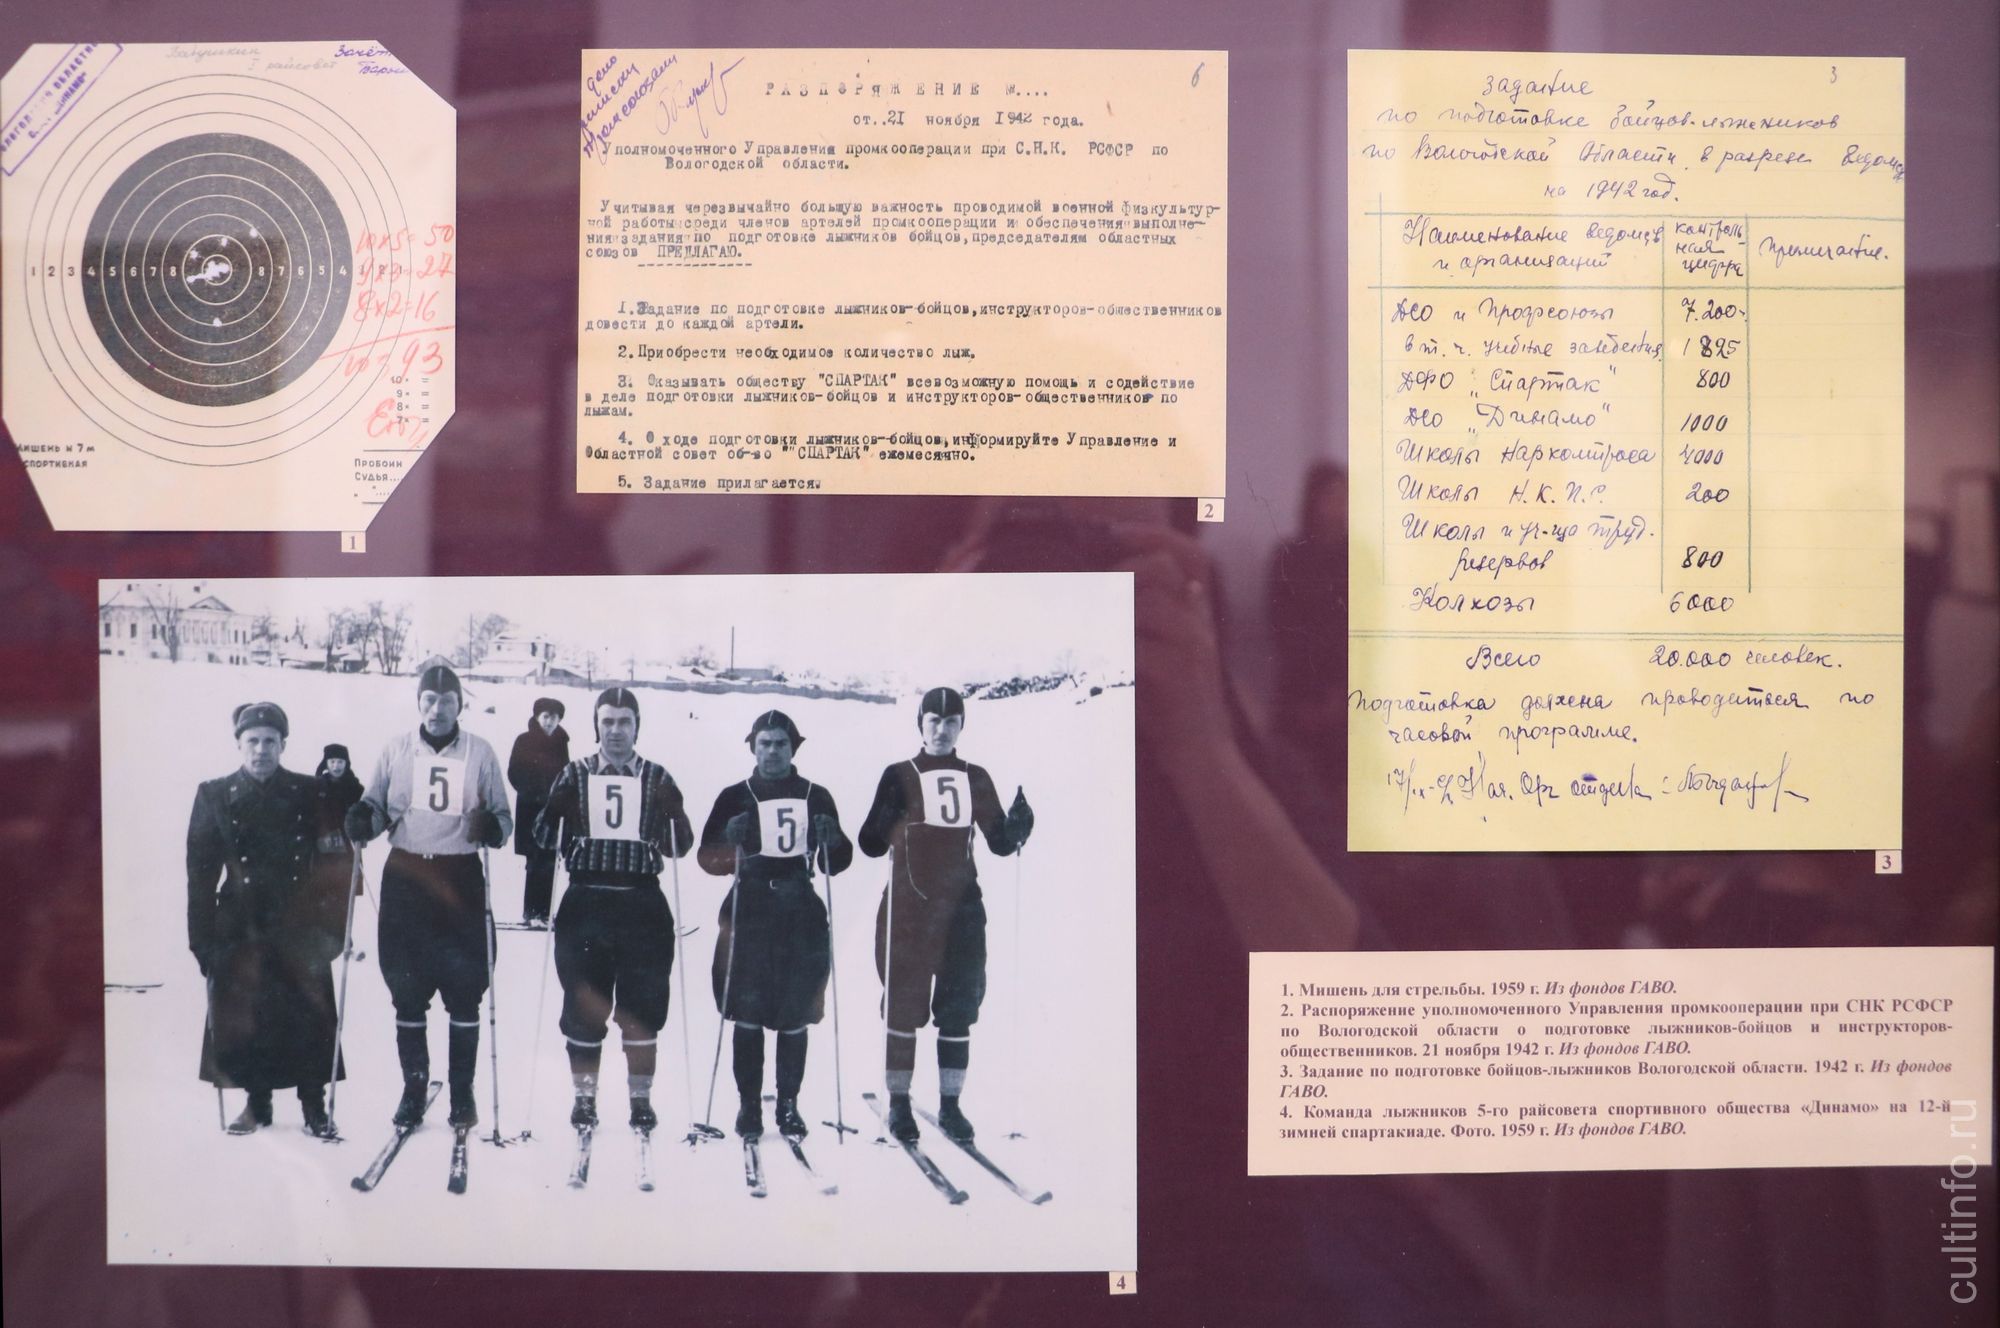 Бабушкин
I райсовет
Зачёт
ВОЛОГОДСКИЙ ОБЛАСТН
"ДИНАМО"
1 2 3 4 5 6 7 8
8 7 6 5 4 3 2 1
10х5=50
9х3=27
8х2=16
10=93
10× =
9× =
8× =
7× =
МИШЕНЬ № 7 м
СПОРТИВНАЯ
Пробоин
Судья....
" ....
1
дело
Промсоюзами
6
РАЗПОРЯЖЕНИЕ №....
от..21 ноября 1942 года.
Уполномоченного Управления промкооперации при С.Н.К. РСФСР по
Вологодской области.
Учитывая черезвычайно большую важность проводимой военной физкультур-
ной работы среди членов артелей промкооперации и обеспечения выполне-
ния задания по подготовке лыжников бойцов,председателям областных
союзов ПРЕДЛАГАЮ.
1.Задание по подготовке лыжников-бойцов,инструкторов-общественников
довести до каждой артели.
2.Приобрести необходимое количество лыж.
3. Оказывать обществу "СПАРТАК" всевозможную помощь и содействие
в деле подготовки лыжников-бойцов и инструкторов-общественников по
лыжам.
4. О ходе подготовки лыжников-бойцов,информируйте Управление и
Областной совет об-во ""СПАРТАК" ежемесячно.
5. Задание прилагается.
2
3
Задание
по подготовке бойцов-лыжников
по Вологодской Области в разрезе Ведомс
на 1942 год.
Наименование ведомств и организаций
контрольная цифра
Примечание.
ДСО и Профсоюзы 7.200-
в т. ч. учебные заведения 1825
ДФО „Спартак" 800
ДСО „Динамо" 1000
Школы Наркомпроса 4000
Школы Н.К.П.С. 200
Школы и уч-ща труд.
резервов 800
Колхозы 6000
Всего 20.000 человек.
Подготовка должна проводиться по
часовой программе.
3
4
1. Мишень для стрельбы. 1959 г. Из фондов ГАВО.
2. Распоряжение уполномоченного Управления промкооперации при СНК РСФСР
по Вологодской области о подготовке лыжников-бойцов и инструкторов-
общественников. 21 ноября 1942 г. Из фондов ГАВО.
3. Задание по подготовке бойцов-лыжников Вологодской области. 1942 г. Из фондов
ГАВО.
4. Команда лыжников 5-го райсовета спортивного общества «Динамо» на 12-й
зимней спартакиаде. Фото. 1959 г. Из фондов ГАВО.
5
5
5
5
cultinfo.ru